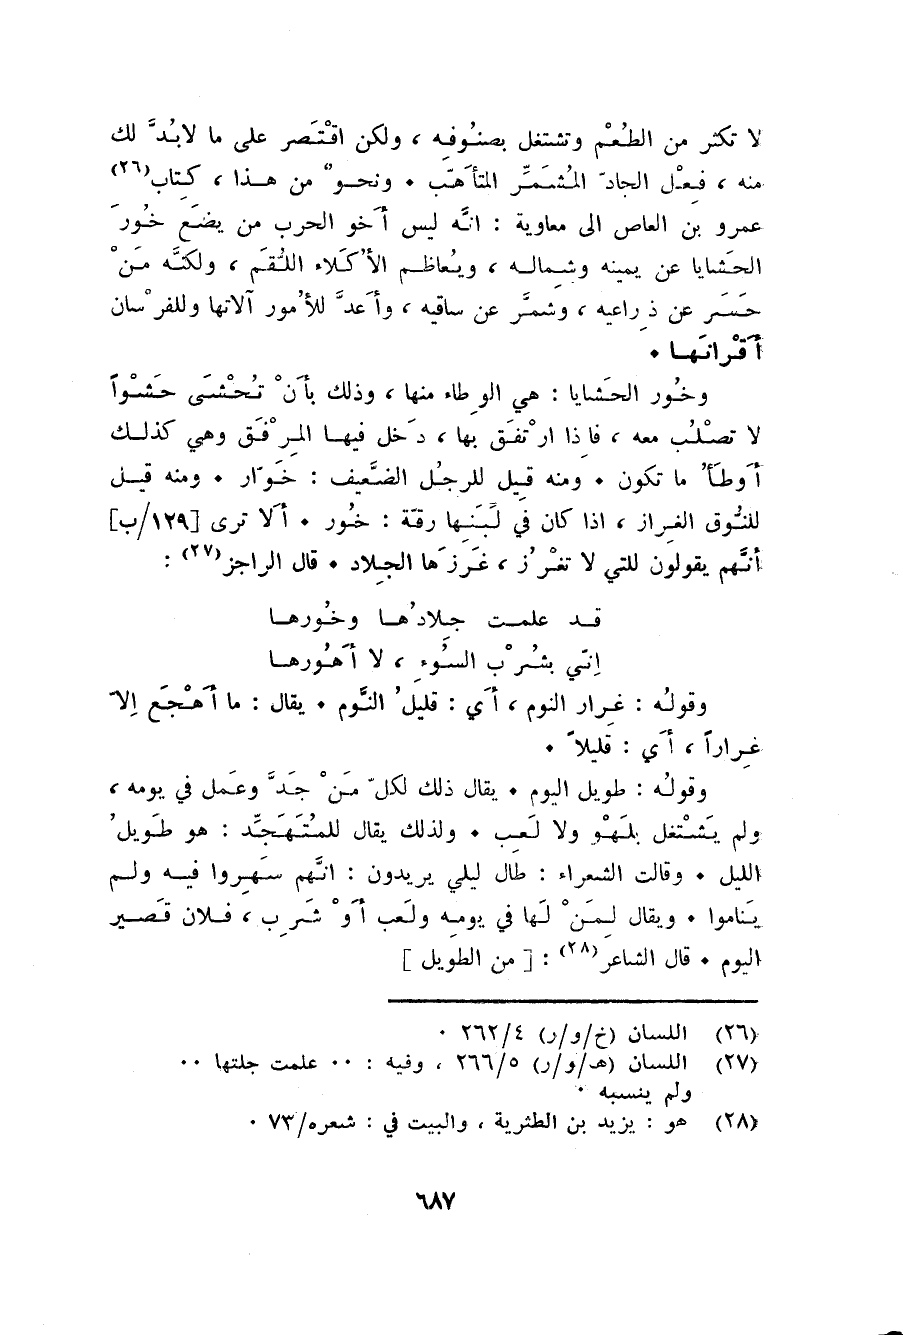 لا تكثر من الطُعْم وتشتغل بصنُوفِه ، ولكن اقْتَصر على ما لابُدَّ لك
منه ، فِعْل الجادّ المُشمِّر المتأهّب ٠ ونحو" من هذا ، كِتاب(٢٦)
عمرو بن العاص الى معاوية : انَّه ليس أَخو الحرب من يضَع خُورَ
الحَشايا عن يمينه وشِماله ، ويُعاظم الأَكَلاء اللُّقَم ، ولكنَّه مَنْ
حَسَر عن ذِراعيه ، وشمَّر عن ساقيه ، وأَعدَّ للأُمور آلاتها وللفرْسان
أَقْرانَها ٠
وخُور الحَشايا : هي الوِطاء منها ، وذلك بأَنْ تُحْشَى حَشْواً
لا تصْلُب معه ، فاِذا ارْتفَق بها ، دَخل فيها المِرْفَق وهي كذلك
أَوطأُ ما تكون ٠ ومنه قِيل للرجُل الضَّعيف : خَوّار ٠ ومنه قيل
للنُّوق الغِراز ، اذا كان في لَبَنِها رقة : خُور ٠ ألا ترى [١٢٩/ب]
أنَّهم يقولون للتي لا تغْرُز ، غَرزَها الجِلاد ٠ قال الراجز(٢٧) :
قد علمت جِلادُها وخُورها
اِنّي بشُرْب السُوء ، لا أَهُورها
وقولُه : غِرار النوم ، أَي : قليلُ النَّوم ٠ يقال : ما أَهْجَع اِلاّ
غِراراً ، أَي : قليلاً ٠
وقولُه : طويل اليوم ٠ يقال ذلك لكلّ مَنْ جَدَّ وعَمل في يومه ،
ولم يَشْتغل بلَهْو ولا لَعب ٠ ولذلك يقال للمُتَهَجِّد : هو طَويلُ
الليل ٠ وقالت الشعراء : طال ليلي يريدون : انَّهم سَهروا فيه ولم
يَناموا ٠ ويقال لِمَنْ لَها في يومِه ولَعب أَوْ شَرِب ، فلان قَصير
اليوم ٠ قال الشاعر(٢٨) : [ من الطويل ]
(٢٦) اللسان (خ/و/ر) ٢٦٢/٤ ٠
(٢٧) اللسان (هـ/و/ر) ٢٦٦/٥ ، وفيه : ٠٠ علمت جلتها ٠٠
ولم ينسبه ٠
(٢٨) هو : يزيد بن الطثرية ، والبيت في : شعره/٧٣ ٠
٦٨٧